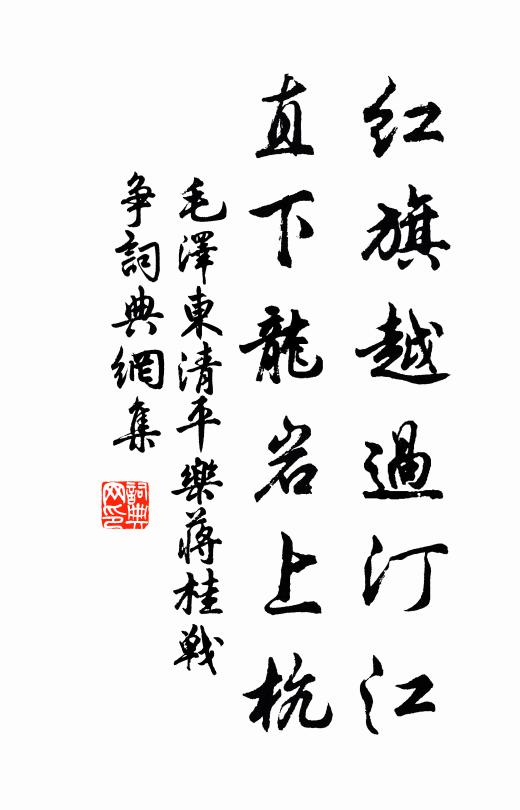 红旗越過汀江
直下龍岩上杭
毛澤東清平樂蔣桂戰
争詞典網集
詞典
网印